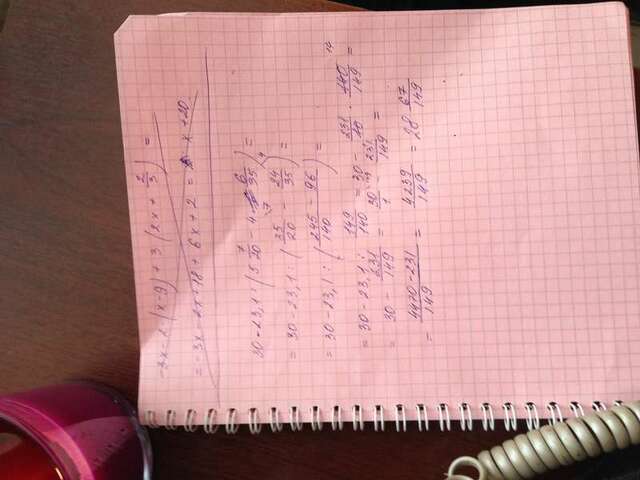 -3x - 2 · (x - 9) + 3 (2x + 2/3) =
= -3x - 2x - 18 + 6x + 2 = x + 20
30 - 23,1 : (5 7/20 - 4 6/35) =
= 30 - 23,1 : (35/20 - 24/35) =
= 30 - 23,1 : (245 - 96/140) =
= 30 - 23,1 : 149/140 = 30 - 231/10 · 140/149 =
= 30 - 231/149 = 30/1 - 231/149 =
= 4470 - 231/149 = 4239/149 = 28 67/149